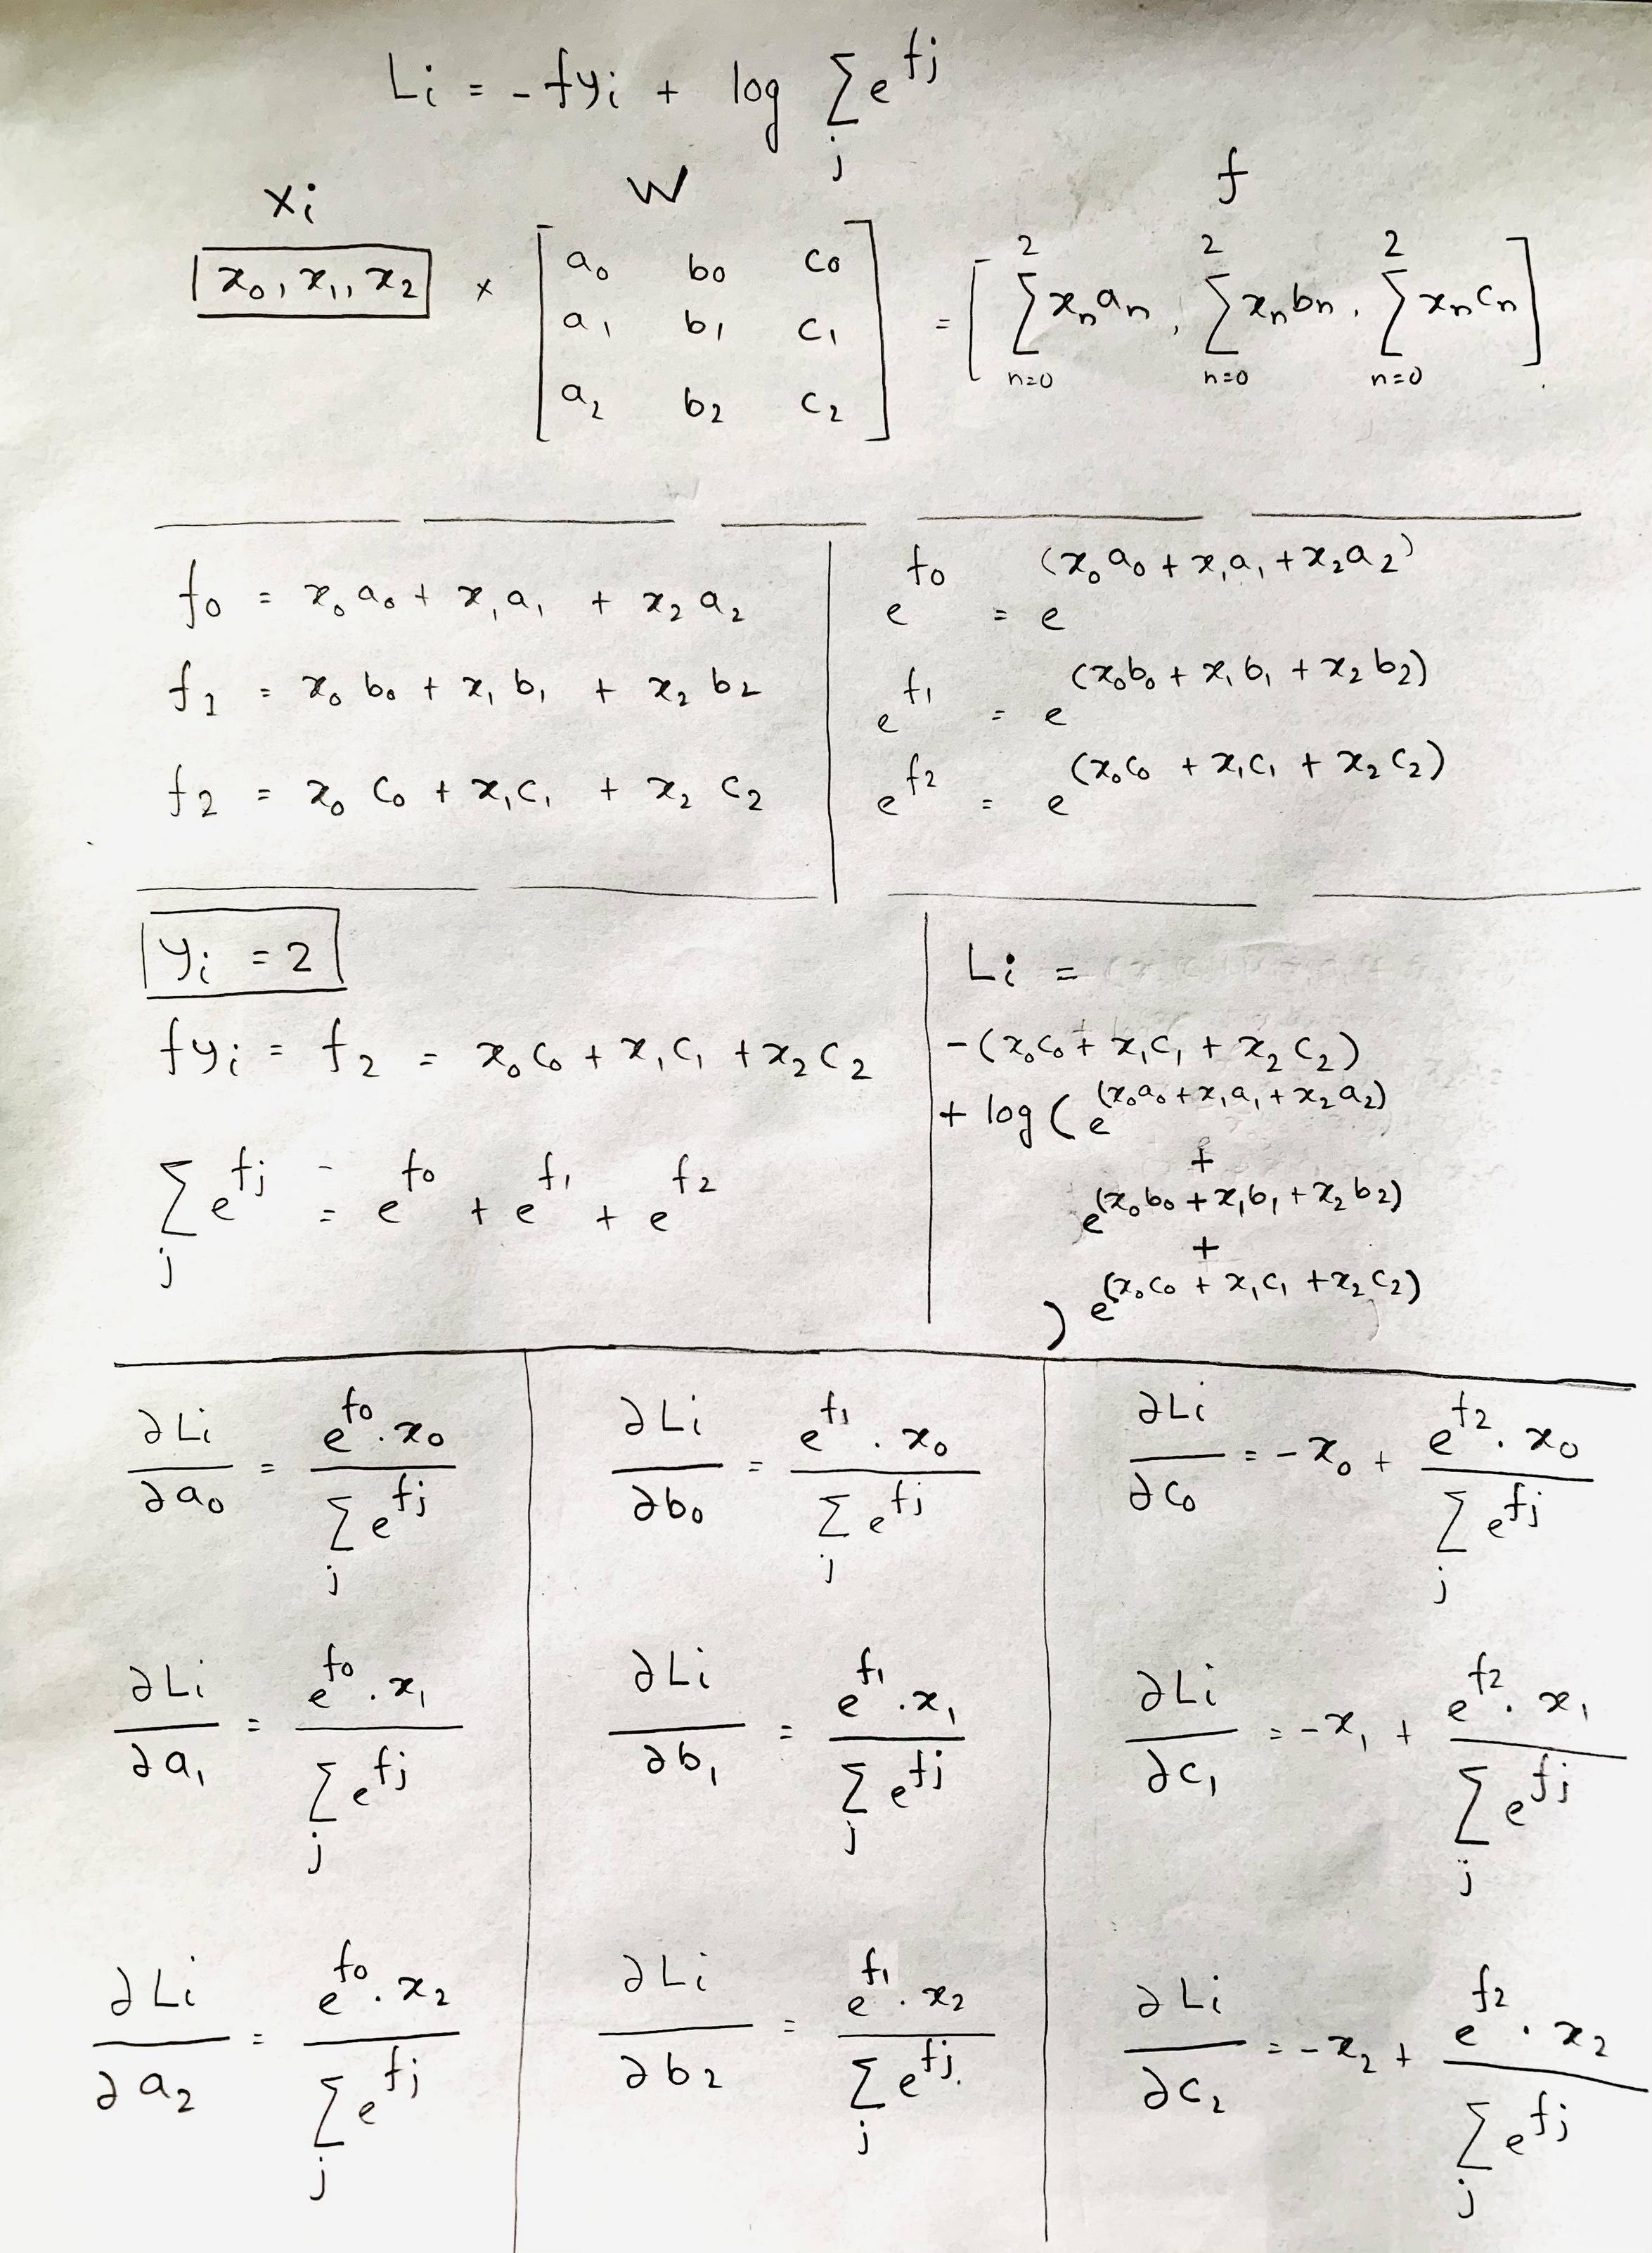 Li = -fyi + log ∑_j e^fj
xi W f
[x0, x1, x2] × [a0 b0 c0; a1 b1 c1; a2 b2 c2] = [∑_{n=0}^{2} xn an, ∑_{n=0}^{2} xn bn, ∑_{n=0}^{2} xn cn]
f0 = x0 a0 + x1 a1 + x2 a2
f1 = x0 b0 + x1 b1 + x2 b2
f2 = x0 c0 + x1 c1 + x2 c2
e^f0 = e^(x0 a0 + x1 a1 + x2 a2)
e^f1 = e^(x0 b0 + x1 b1 + x2 b2)
e^f2 = e^(x0 c0 + x1 c1 + x2 c2)
yi = 2
fyi = f2 = x0 c0 + x1 c1 + x2 c2
∑_j e^fj = e^f0 + e^f1 + e^f2
Li =
-(x0 c0 + x1 c1 + x2 c2)
+ log ( e^(x0 a0 + x1 a1 + x2 a2)
+
e^(x0 b0 + x1 b1 + x2 b2)
+
e^(x0 c0 + x1 c1 + x2 c2)
)
∂Li/∂a0 = e^f0 . x0 / ∑_j e^fj
∂Li/∂a1 = e^f0 . x1 / ∑_j e^fj
∂Li/∂a2 = e^f0 . x2 / ∑_j e^fj
∂Li/∂b0 = e^f1 . x0 / ∑_j e^fj
∂Li/∂b1 = e^f1 . x1 / ∑_j e^fj
∂Li/∂b2 = e^f1 . x2 / ∑_j e^fj
∂Li/∂c0 = -x0 + e^f2 . x0 / ∑_j e^fj
∂Li/∂c1 = -x1 + e^f2 . x1 / ∑_j e^fj
∂Li/∂c2 = -x2 + e^f2 . x2 / ∑_j e^fj